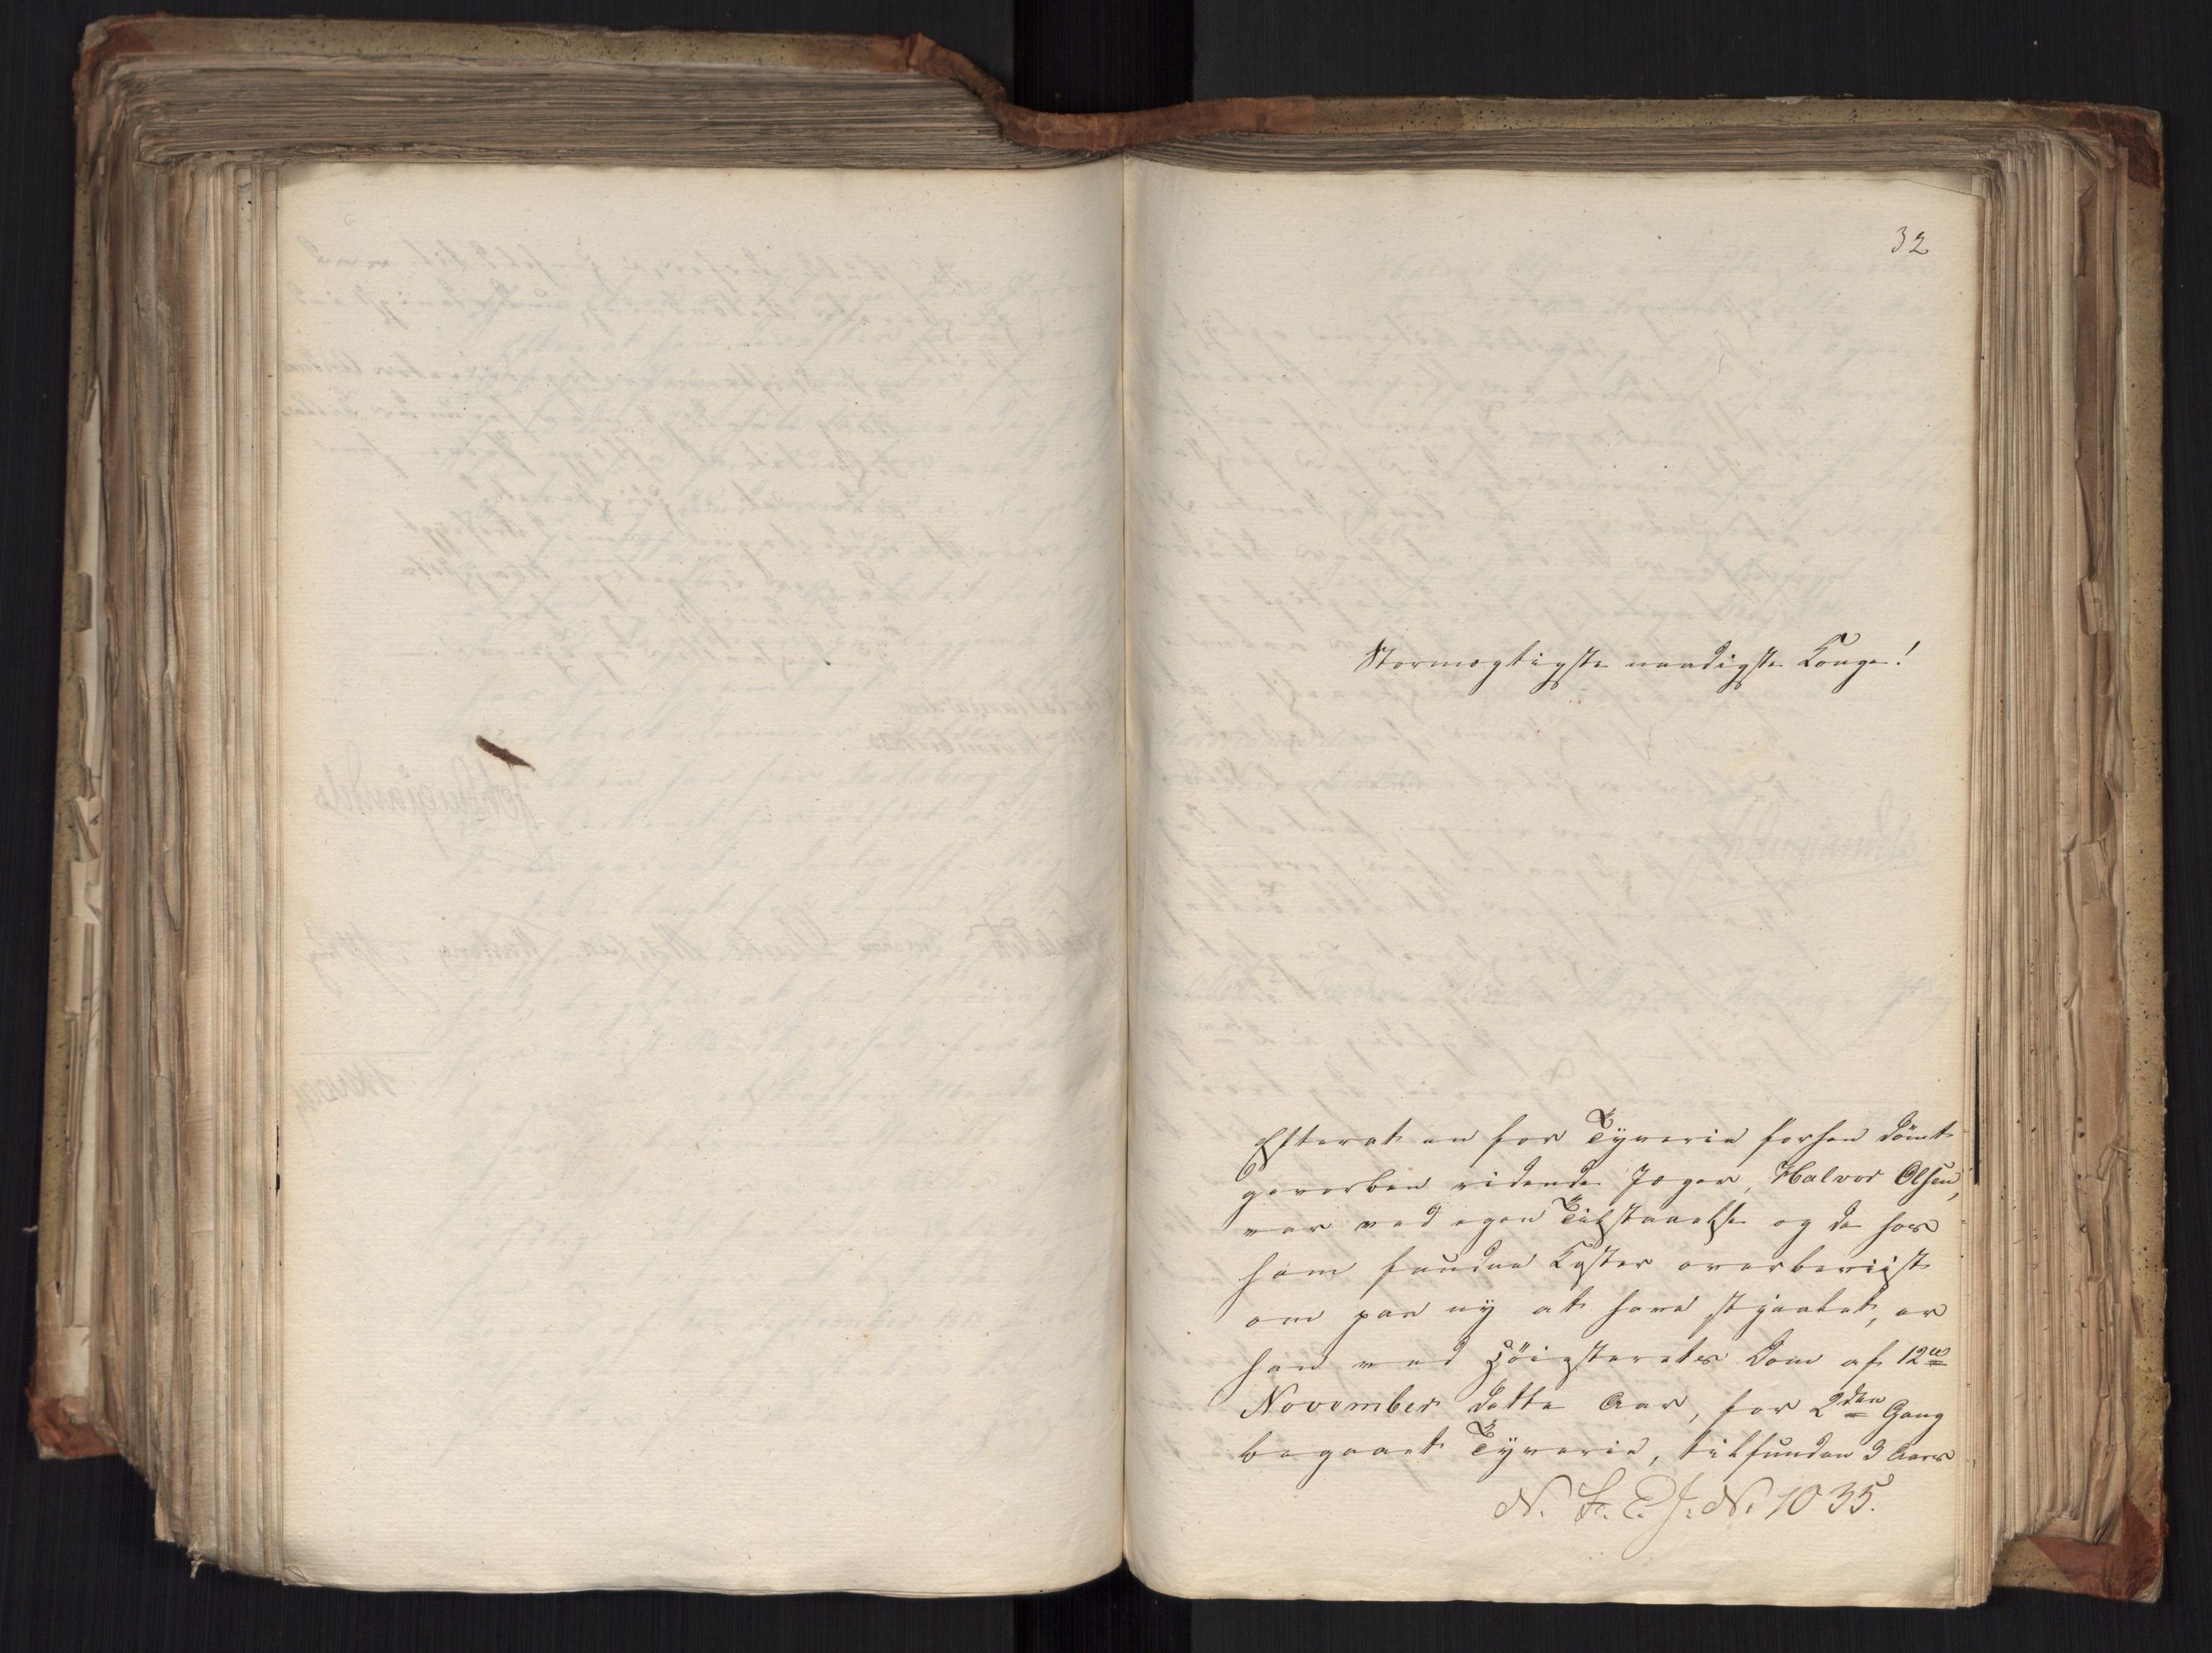 32
Stormægtigste naadigste Konge!
Efterat en for Tyverie forhen dömt
gevorben ridende Jæger, Halvor Olsen,
var ved egen Tilstaaelse og de hos
ham fundne Koster overbeviist
om paa ny at have stjaalet, er
han ved Höiesterets Dom af 12te
November dette Aar, for 2den Gang
begaaet Tyverie, tilfunden 3 Aars
N. F. E. J. N. 1035.